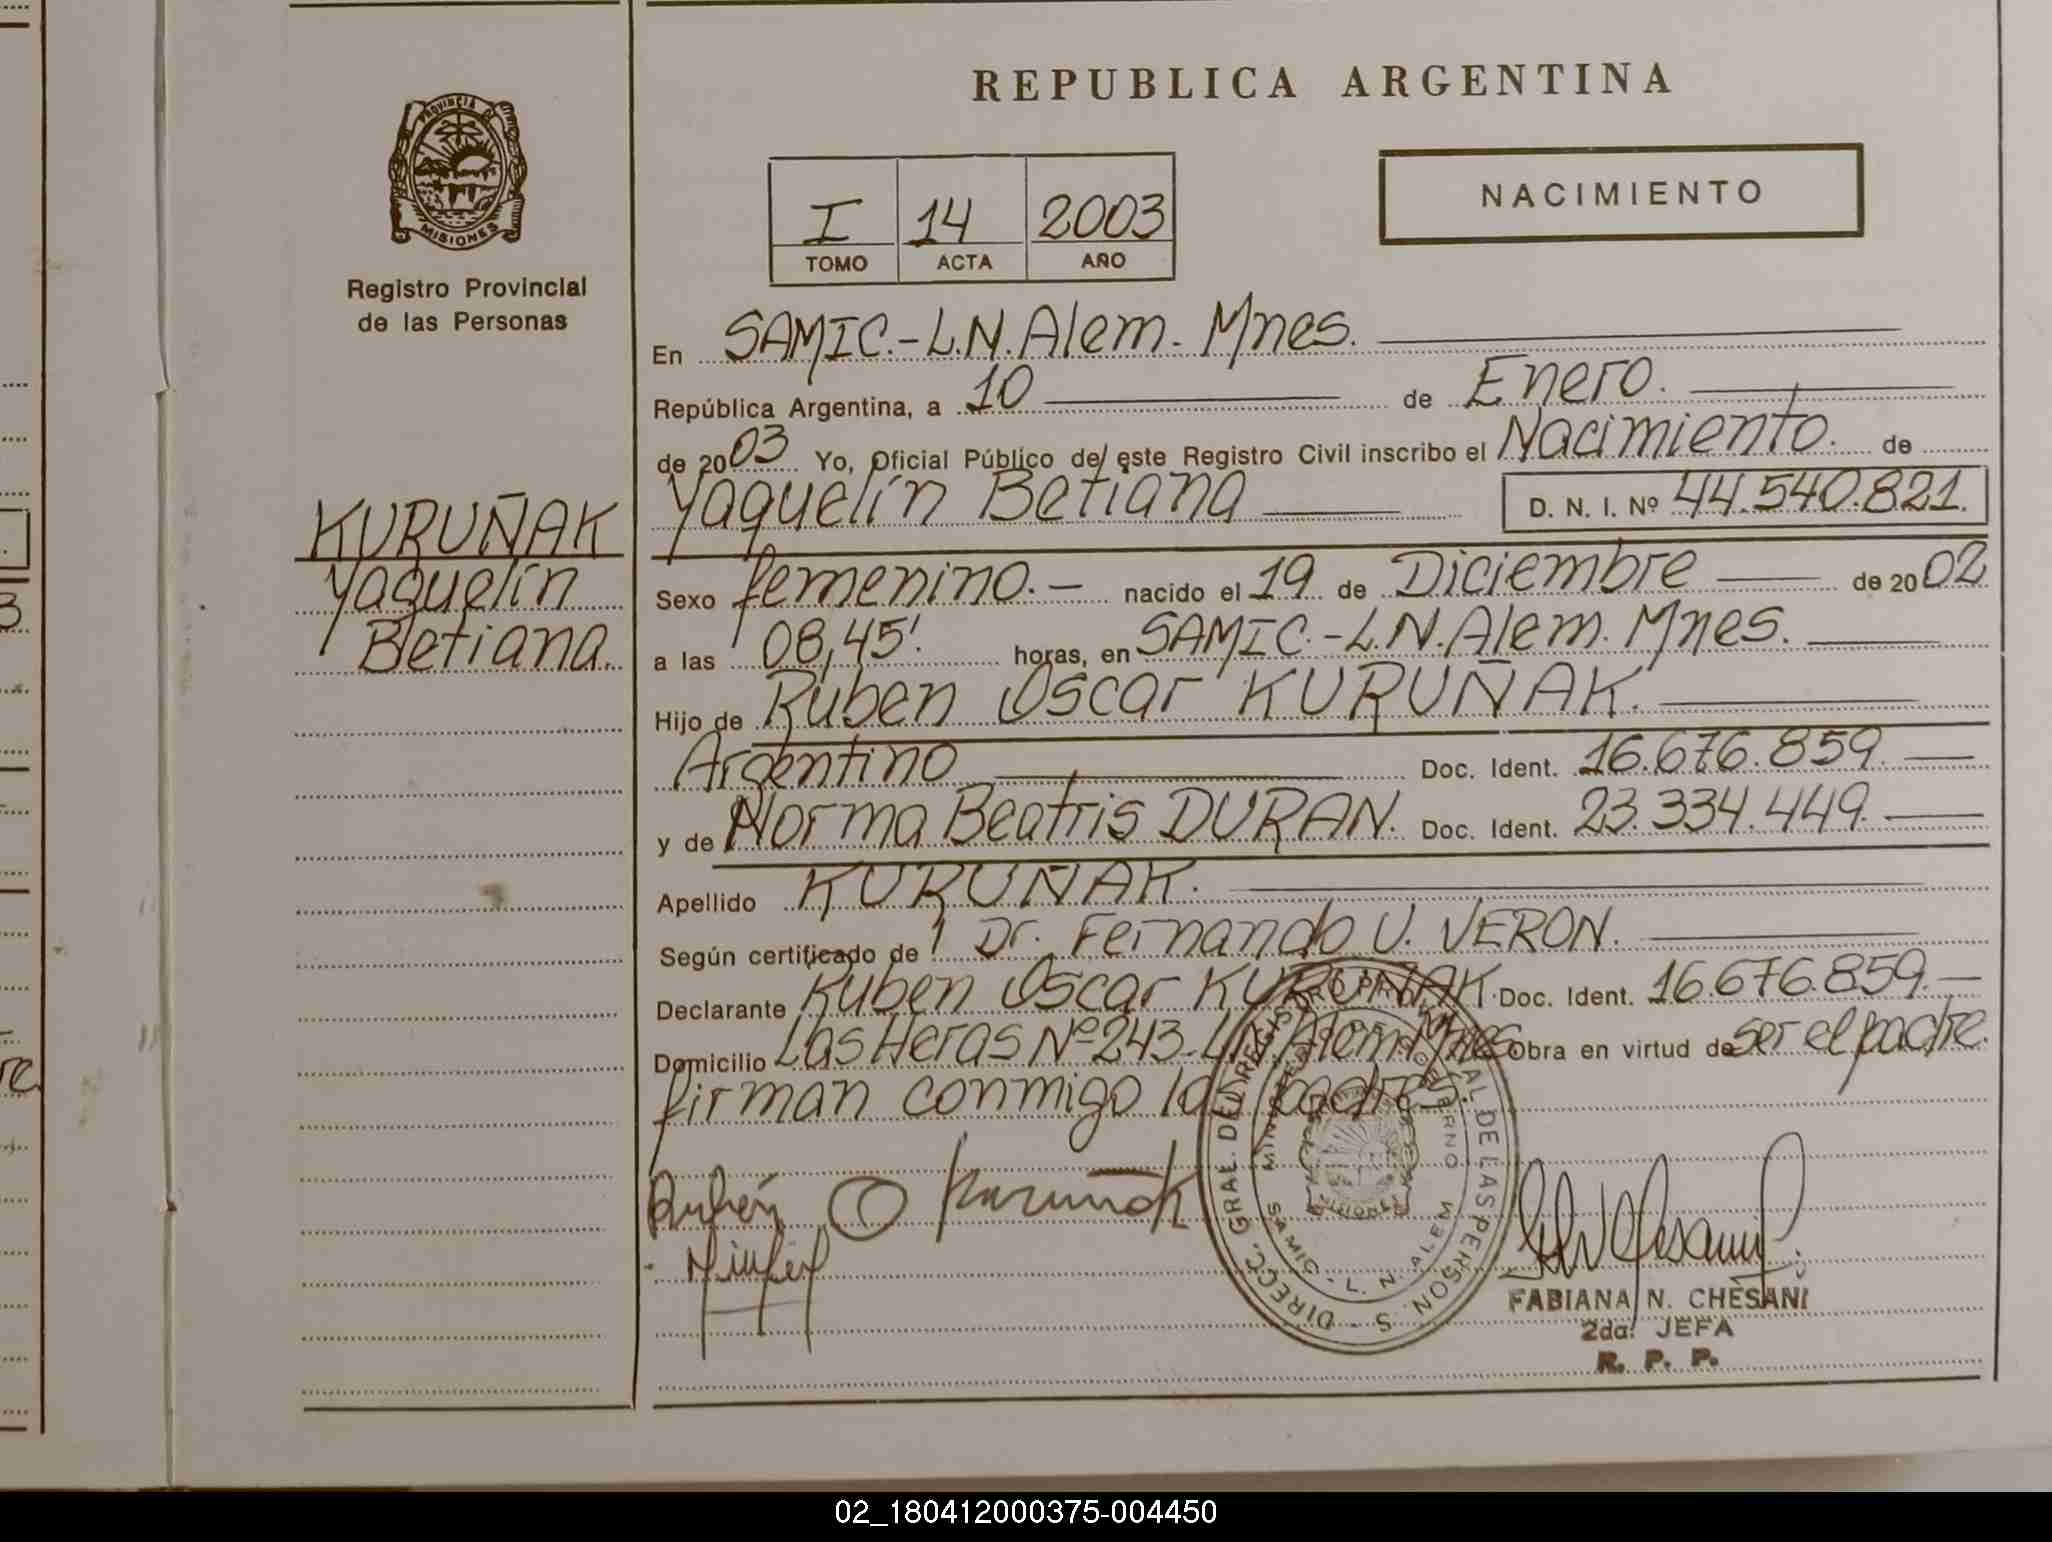 REPUBLICA ARGENTINA
PROVINCIA DE
MISIONES
Registro Provincial
de las Personas
I 14 2003
TOMO ACTA AÑO
NACIMIENTO
En SAMIC.-L.N.Alem. Mnes.
República Argentina, a 10 de Enero.
de 2003 Yo, Oficial Público de este Registro Civil inscribo el Nacimiento. de
Yaquelín Betiana D. N. I. Nº 44.540.821.
KURUÑAK
Yaquelín
Betiana.
Sexo femenino.- nacido el 19 de Diciembre de 2002
a las 08,45'. horas, en SAMIC.-L.N.Alem. Mnes.
Hijo de Ruben Oscar KURUÑAK.
Argentino Doc. Ident. 16.676.859.
y de Norma Beatris DURAN. Doc. Ident. 23.334.449.
Apellido KURUÑAK.
Según certificado de Dr. Fernando U. VERON.
Declarante Ruben Oscar KURUÑAK. Doc. Ident. 16.676.859.-
Domicilio Las Heras Nº 243-L.N.Alem-Mnes. Obra en virtud de ser el padre.
firman conmigo los padres.
Rubén O Kuruñak
DIRECC. GRAL. DEL REGISTRO PROVINCIAL DE LAS PERSONAS
SAMIC - L. N. ALEM
FABIANA N. CHESANI
2da. JEFA
R. P. P.
02_180412000375-004450